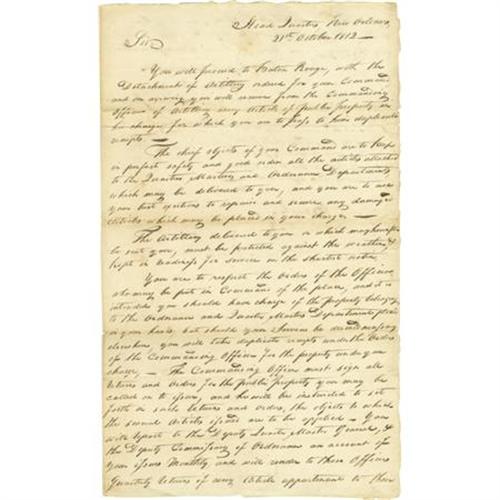 Head Quarters New Orleans,
21st October 1812 —
Sir
You will proceed to Baton Rouge, with the
Detachment of Artillery ordered for your Command
and on arriving you will receive from the Commanding
Officer of Artillery every Article of public property in
his charge, for which you are to pass to him duplicate
receipts —
The chief objects of your Command are to keep
in perfect safety and good order all the articles attached
to the Quarter Masters and Ordnance Departments
which may be delivered to you, and you are to use
your best exertions to repair and secure any damaged
Articles which may be placed in your charge —
The Artillery delivered to you or which may hereafter
be sent you, must be protected against the weather, &
kept in readiness for service on the shortest notice
You are to respect the Orders of the Officer
who may be put in Command of the place, and it is
intended you should have charge of the property belonging
to the Ordnance and Quarter Masters Departments placed
in your hands, but should your Services be deemed necessary
elsewhere you will take duplicate receipts under the Orders
of the Commanding Officer for the property under your
charge, — The Commanding Officer must sign all
returns and Orders for the public property you may be
called on to Issue, and he will be instructed to set
forth in such returns and orders, the objects to which
the several Articles issued are to be applied — You
will report to the Deputy Quarter Master General, &
the Deputy Commissary of Ordnance an account of
your issues Monthly, and will render to those Officers
Quarterly returns of every Article appertinent to their